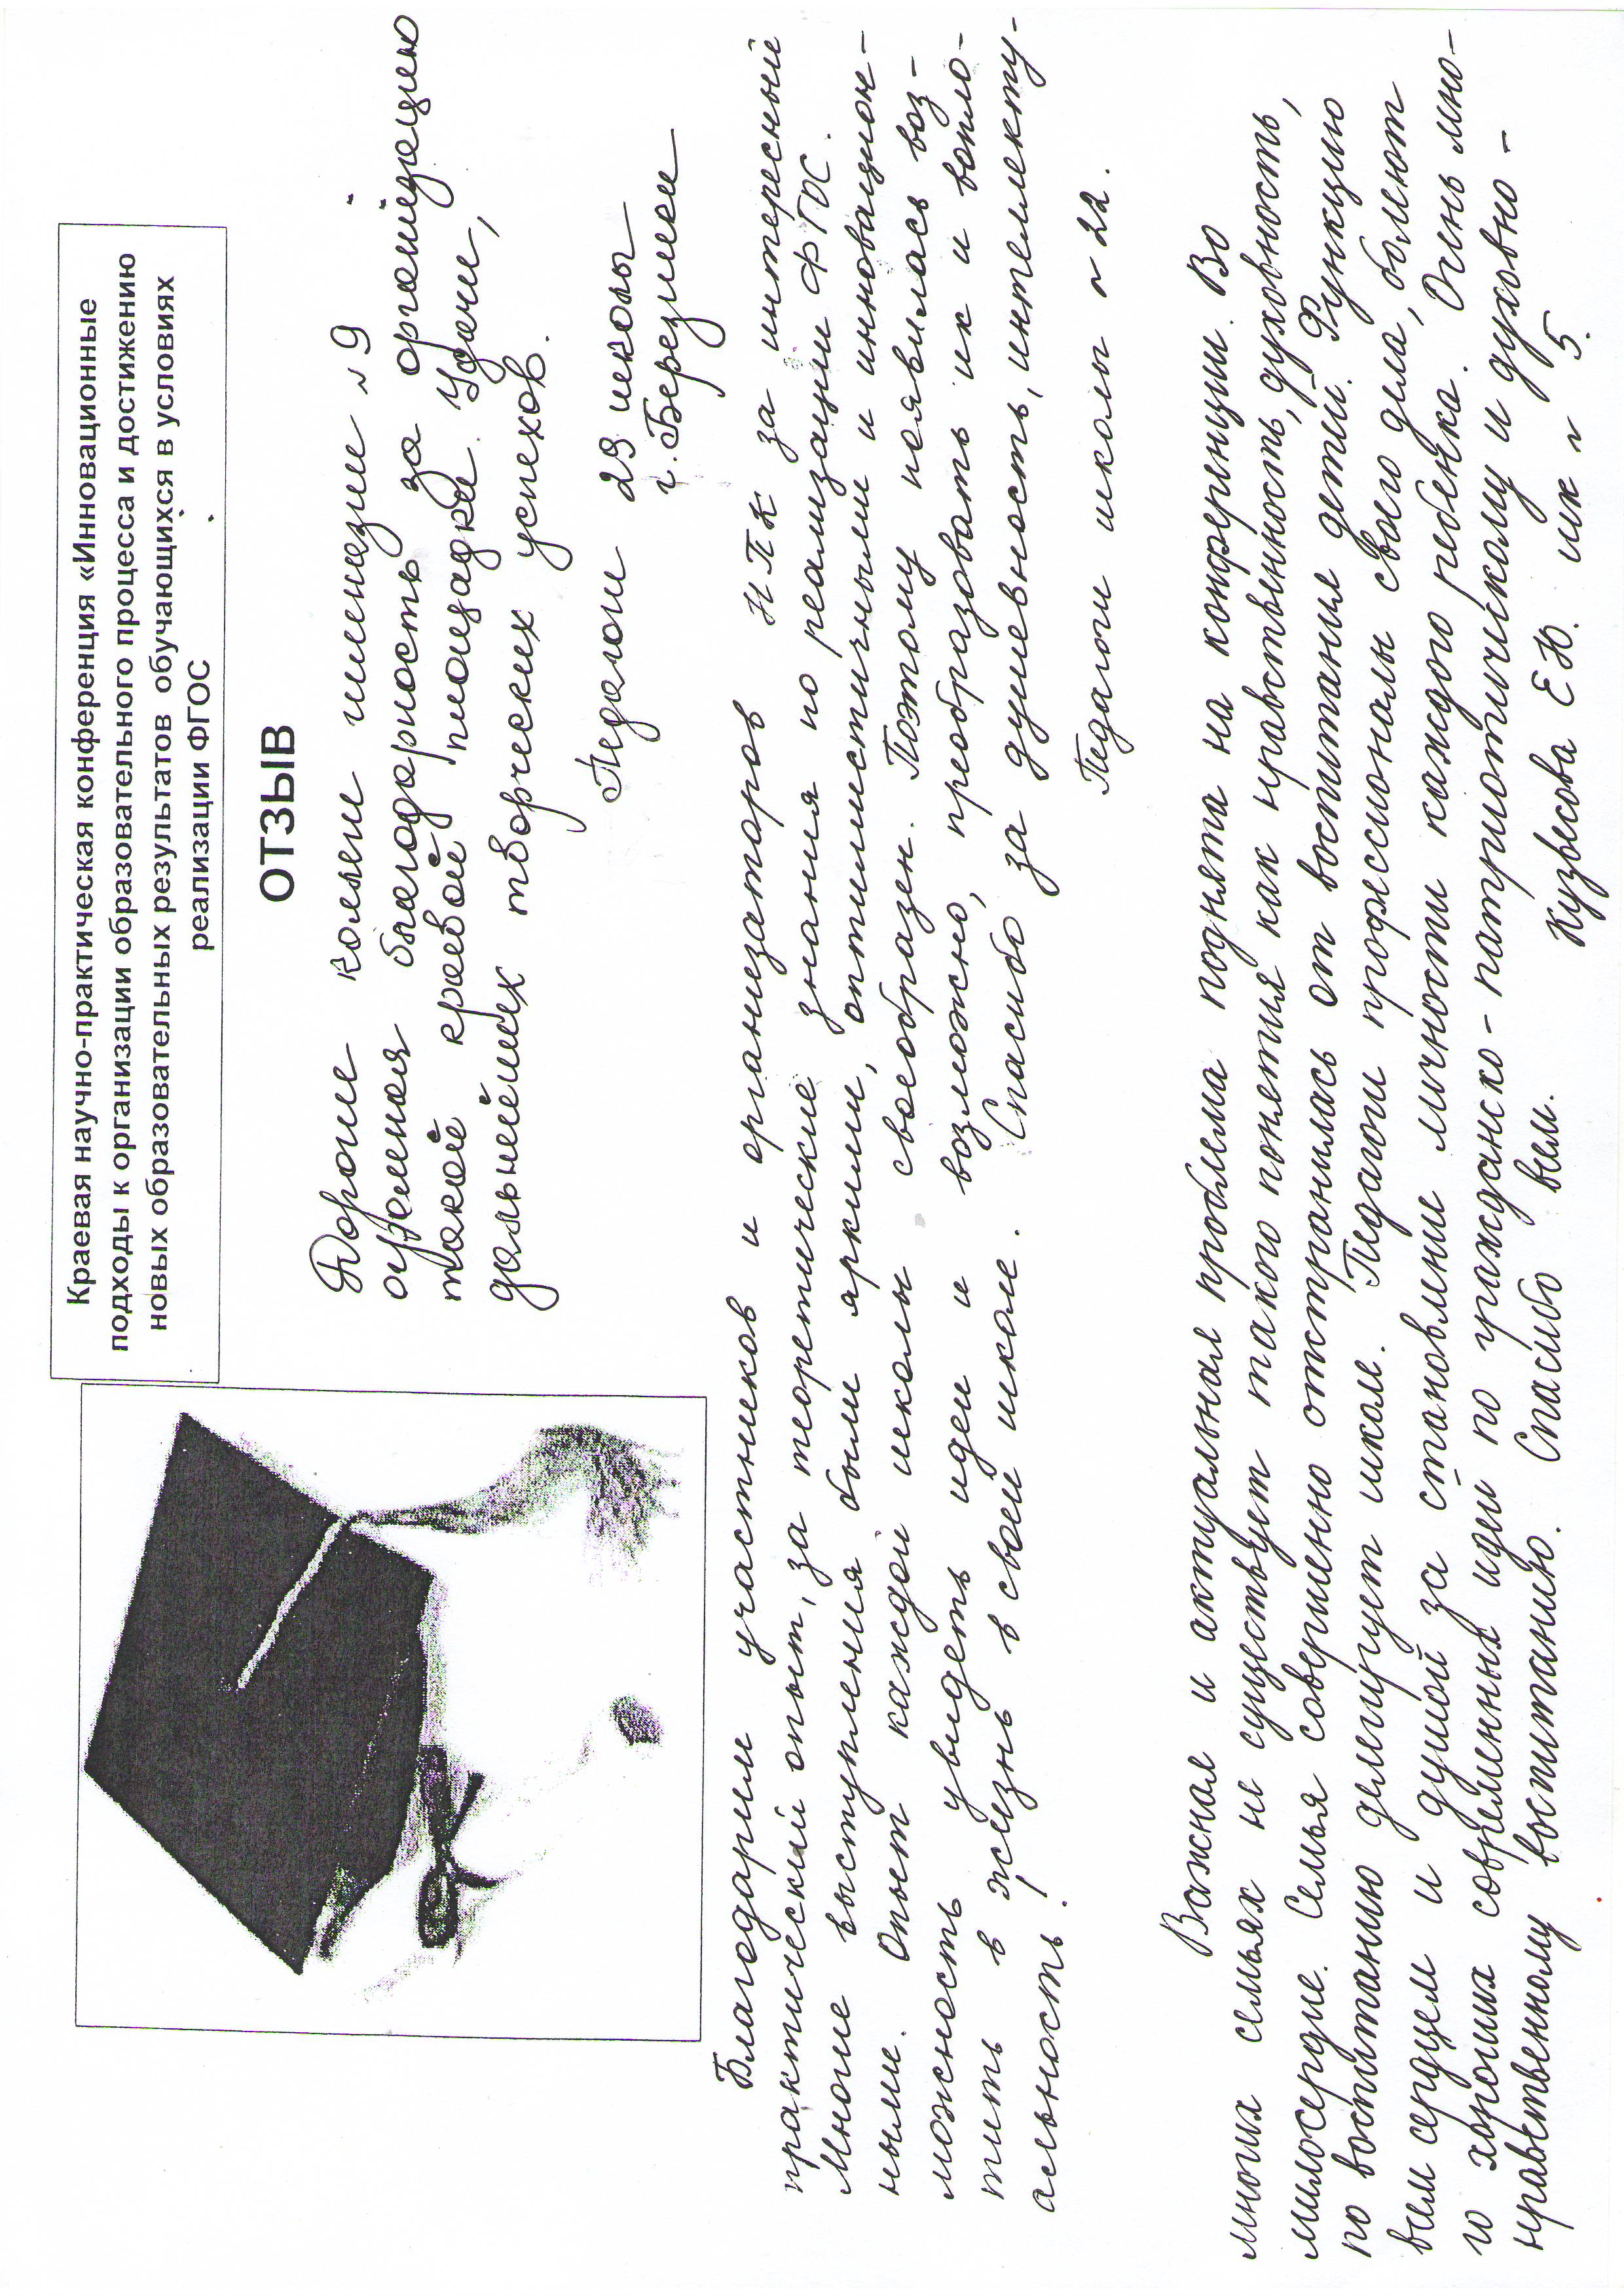 Краевая научно-практическая конференция «Инновационные
подходы к организации образовательного процесса и достижению
новых образовательных результатов обучающихся в условиях
реализации ФГОС
ОТЗЫВ
Дорогие коллеги гимназии № 9
огромная благодарность за организацию
такой краевой площадки. Удачи,
дальнейших творческих успехов.
Педагоги 29 школы
г. Березники
Благодарим участников и организаторов НПК за интересный
практический опыт, за теоретические знания по реализации ФГОС.
Многие выступления были яркими, оптимистичными и инновацион-
ными. Опыт каждой школы своеобразен. Поэтому появилась воз-
можность увидеть идеи и возможно, преобразовать их и вопло-
тить в жизнь в своей школе. Спасибо за душевность, интеллекту-
альность!
Педагоги школы № 22.
Важная и актуальная проблема поднята на конференции. Во
многих семьях не существует такого понятия как нравственность, духовность,
милосердие. Семья совершенно отстранилась от воспитания детей. Функцию
по воспитанию делегирует школе. Педагоги профессионалы своего дела, болеют
всем сердцем и душой за становление личности каждого ребенка. Очень мно-
го хороших современных идей по гражданско-патриотическому и духовно-
нравственному воспитанию. Спасибо вам. Е.Ю. шк № 5.